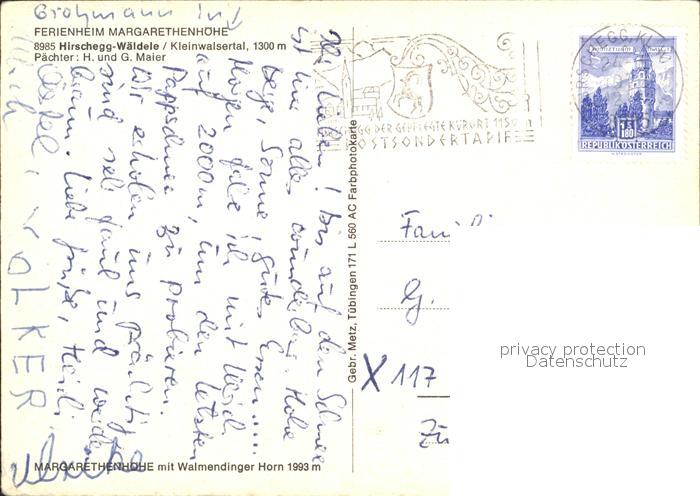 Grohmann
FERIENHEIM MARGARETHENHÖHE
8985 Hirschegg-Wäldele / Kleinwalsertal, 1300 m
Pächter: H. und G. Maier
Ihr Lieben! Bis auf den Schnee
ist hier alles wunderbar. Hohe
Berge, Sonne, gutes Essen.....
Morgen fahre ich mit Heidi
auf 2000m, um den letzten
Pappschnee zu probieren.
Wir erholen uns prächtig,
sind sehr faul und werden
braun. Liebe Grüße, Heidi,
VOLKER
MARGARETHENHÖHE mit Walmendinger Horn 1993 m
Gebr. Metz, Tübingen 171 L 560 AC Farbphotokarte
HIRSCHEGG, KL.
EGG DER GEPFLEGTE KURORT 1150
POSTSONDERTARIF
S 1.80
REPUBLIK ÖSTERREICH
Fam
X 117
privacy protection
Datenschutz